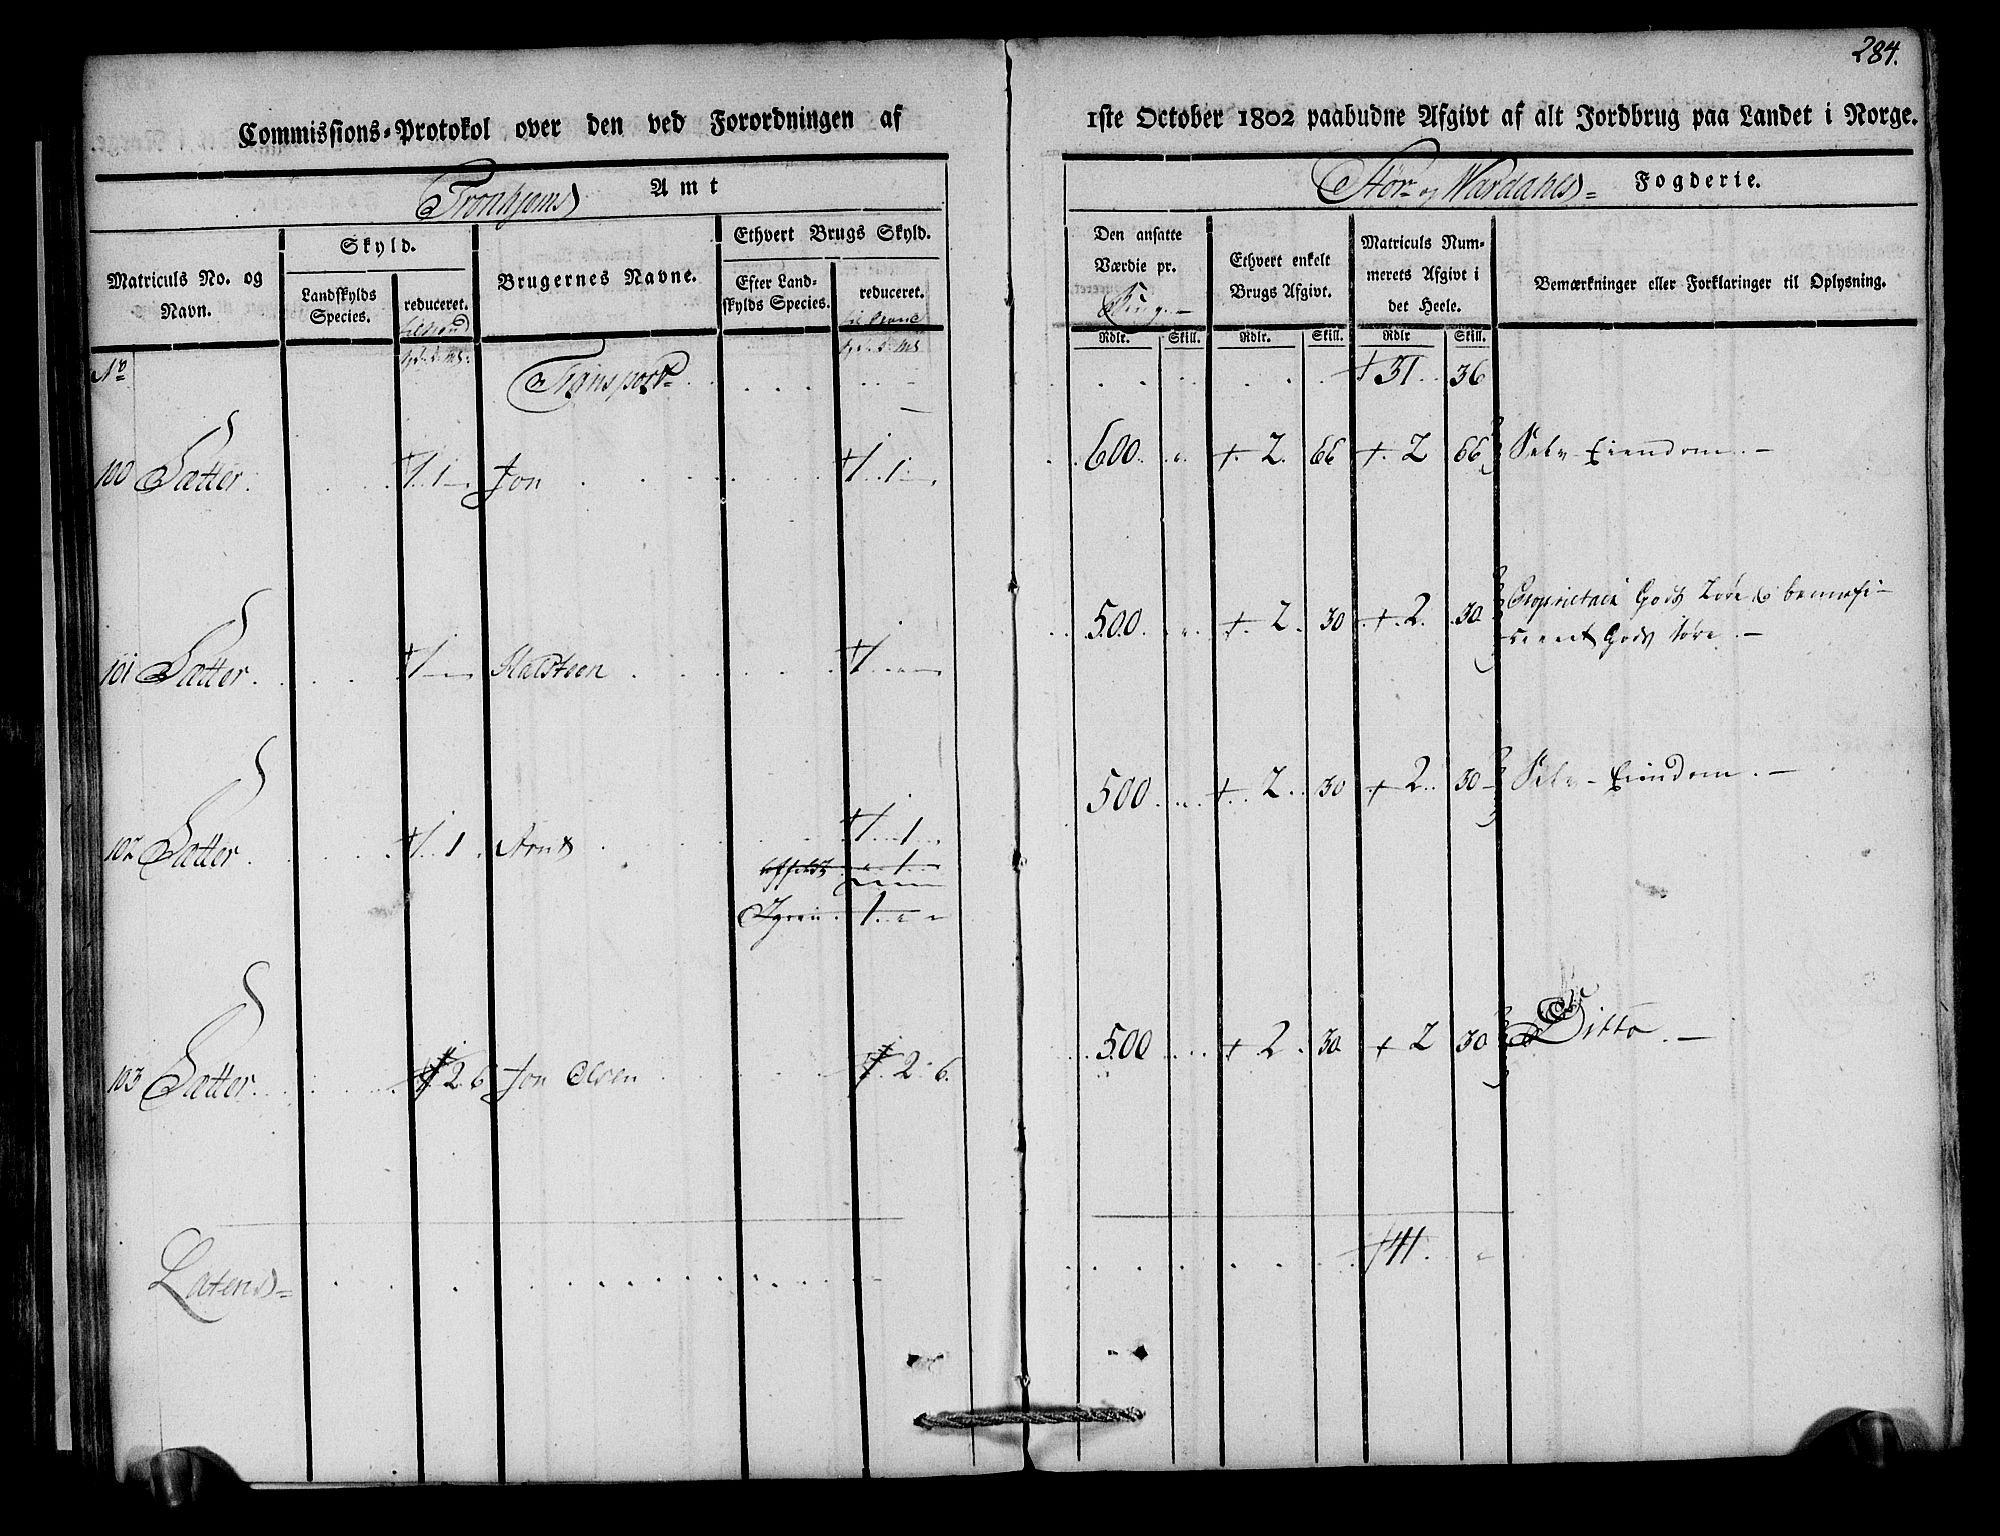 284.
Commissions-Protokol over den ved Forordningen af 1ste October 1802 paabudne Afgivt af alt Jordbrug paa Landet i Norge.
Tronhjems Amt
Stör- og Wærdahls- Fogderie.
Matriculs No. og Navn.
Skyld.
Landskylds Species.
reduceret.
Brugernes Navne.
Ethvert Brugs Skyld.
Efter Landskylds Species.
reduceret.
Den ansatte Værdie pr.
Rdlr. Skill.
Ethvert enkelt Brugs Afgivt.
Rdlr. Skill.
Matriculs Nummerets Afgivt i det Heele.
Rdlr Skill.
Bemærkninger eller Forklaringer til Oplysning.
No Transport 31 36
100 Sætter. 1. 1 Jon 1. 1 600 2. 66 2 66 Selv-Eiendom.
101 Sætter. 1 Halsteen 1 500 2. 30 2. 30 Proprietair Gods
Gods
102 Sætter. 1. 1 Arnt 1. 1 500 2. 30 2. 30 Selv-Eiendom.
1
1
103 Sætter. 2 6 Jon Olsen 2. 6. 500 2. 30 2 30 Ditto.
Latens 41